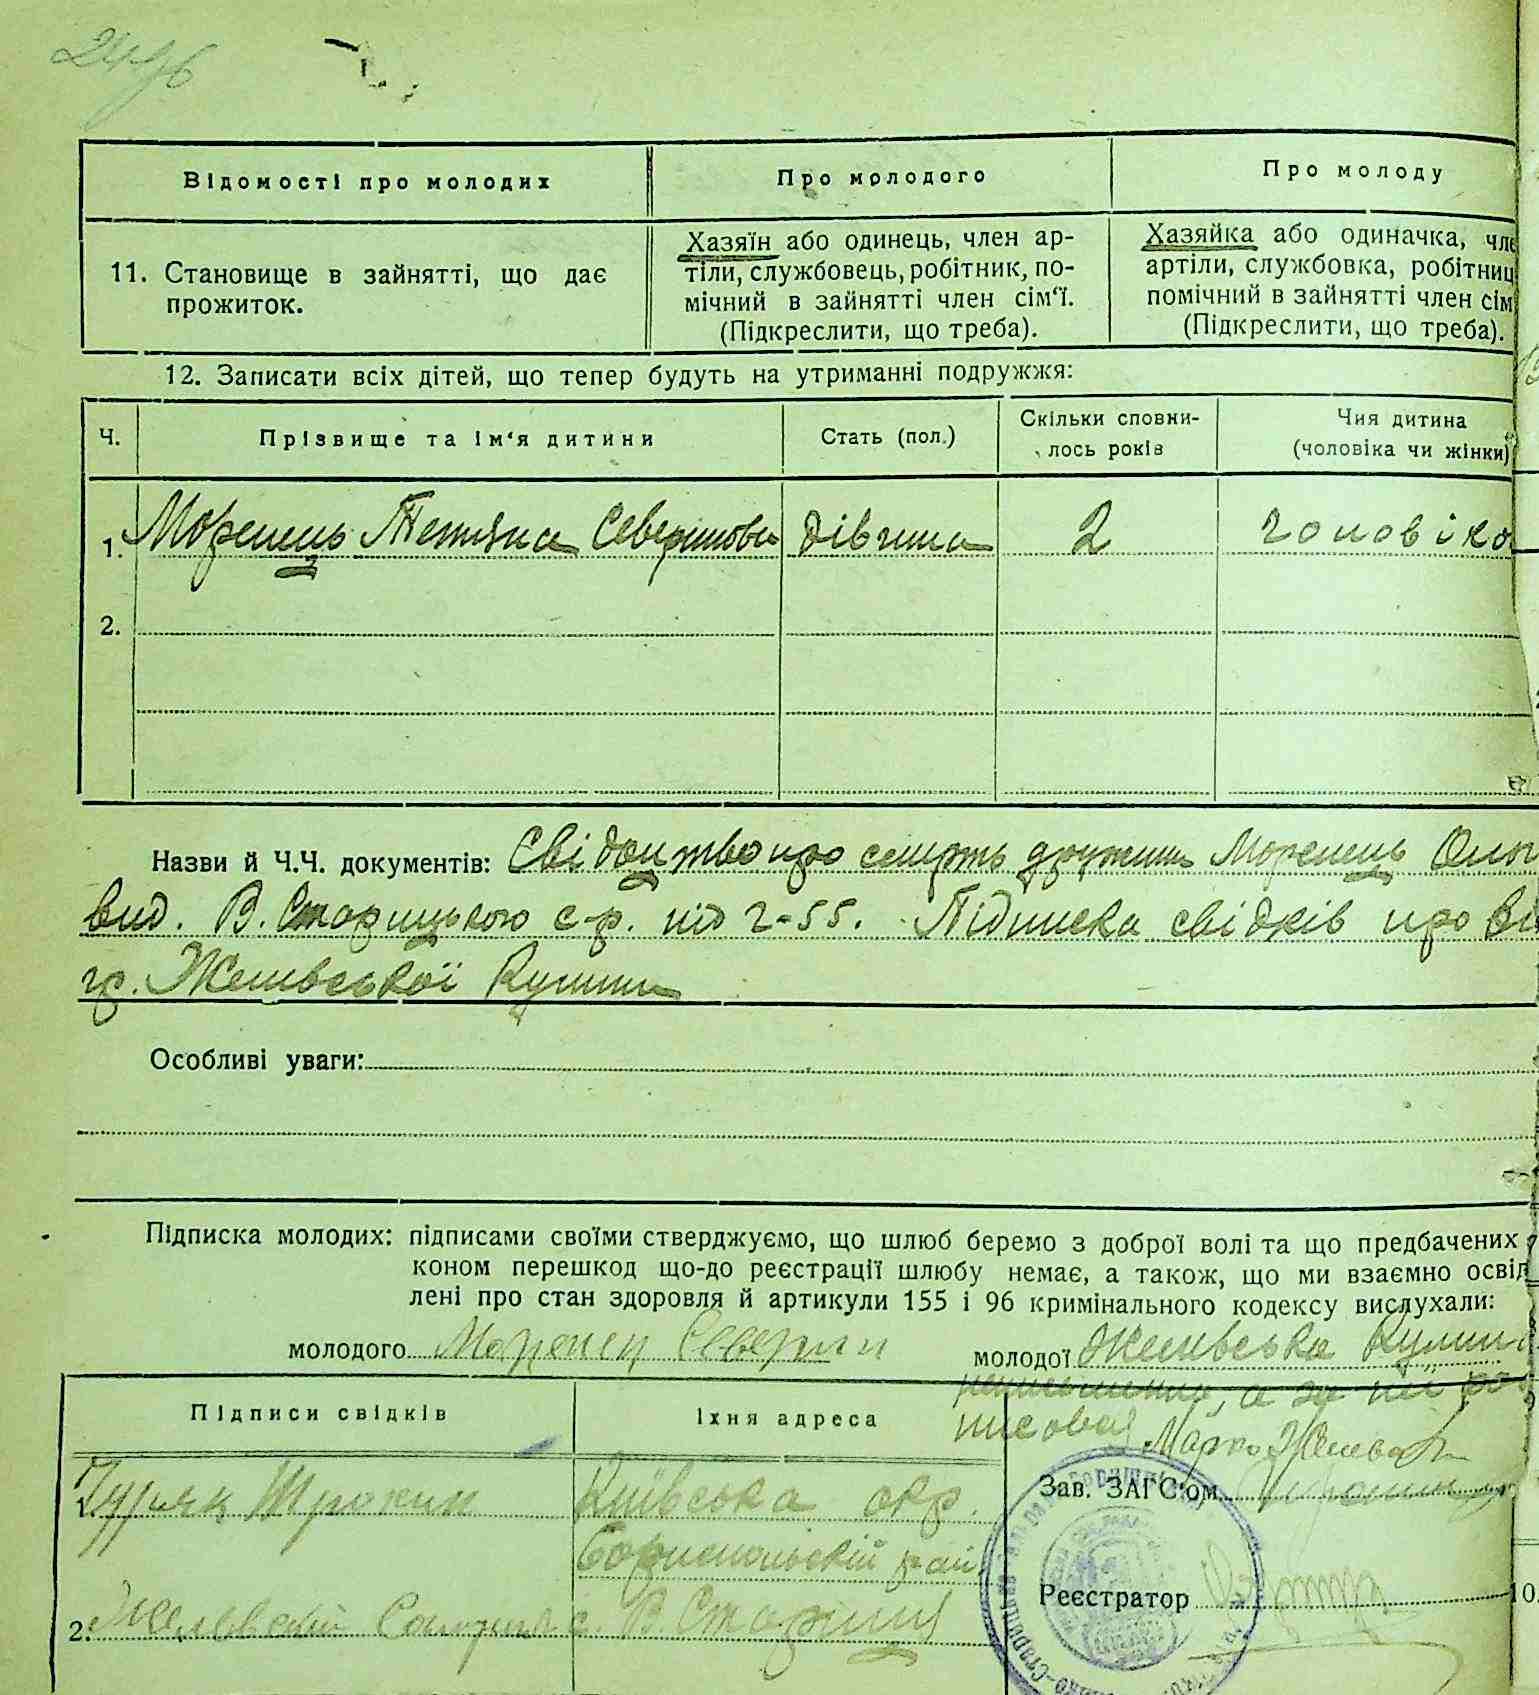 Відомості про молодих
Про молодого
Про молоду
11. Становище в зайнятті, що дає
прожиток.
Хазяїн або одинець, член ар-
тіли, службовець, робітник, по-
мічний в зайнятті член сім'ї.
(Підкреслити, що треба).
Хазяйка або одиначка, чле
артіли, службовка, робітниц
помічний в зайнятті член сім
(Підкреслити, що треба).
12. Записати всіх дітей, що тепер будуть на утриманні подружжя:
Ч.
Прізвище та ім'я дитини
Стать (пол.)
Скільки сповни-
лось років
Чия дитина
(чоловіка чи жінки)
1. Моренець Тетяна Северинова дівчина 2 чоловіка
2.
Назви й Ч.Ч. документів: Свідоцтво про смерть дружини Моренець Ольг
вид. В. Старицькою с-р. під ч-55. Підписка свідків про
гр. Желівської Кулини
Особливі уваги:
Підписка молодих: підписами своїми стверджуємо, що шлюб беремо з доброї волі та що предбачених
коном перешкод що-до реєстрації шлюбу немає, а також, що ми взаємно освід
лені про стан здоровля й артикули 155 і 96 кримінального кодексу вислухали:
молодого Моренец Северин
молодої Желівська Кулина
неписьменна, а за неї роз
писовая Марко
Підписи свідків
Їхня адреса
Київська окр.
Бориспольскій рай.
с. В. Стариця
2. Желівский
Зав. ЗАГС'ом
Реєстратор
10.